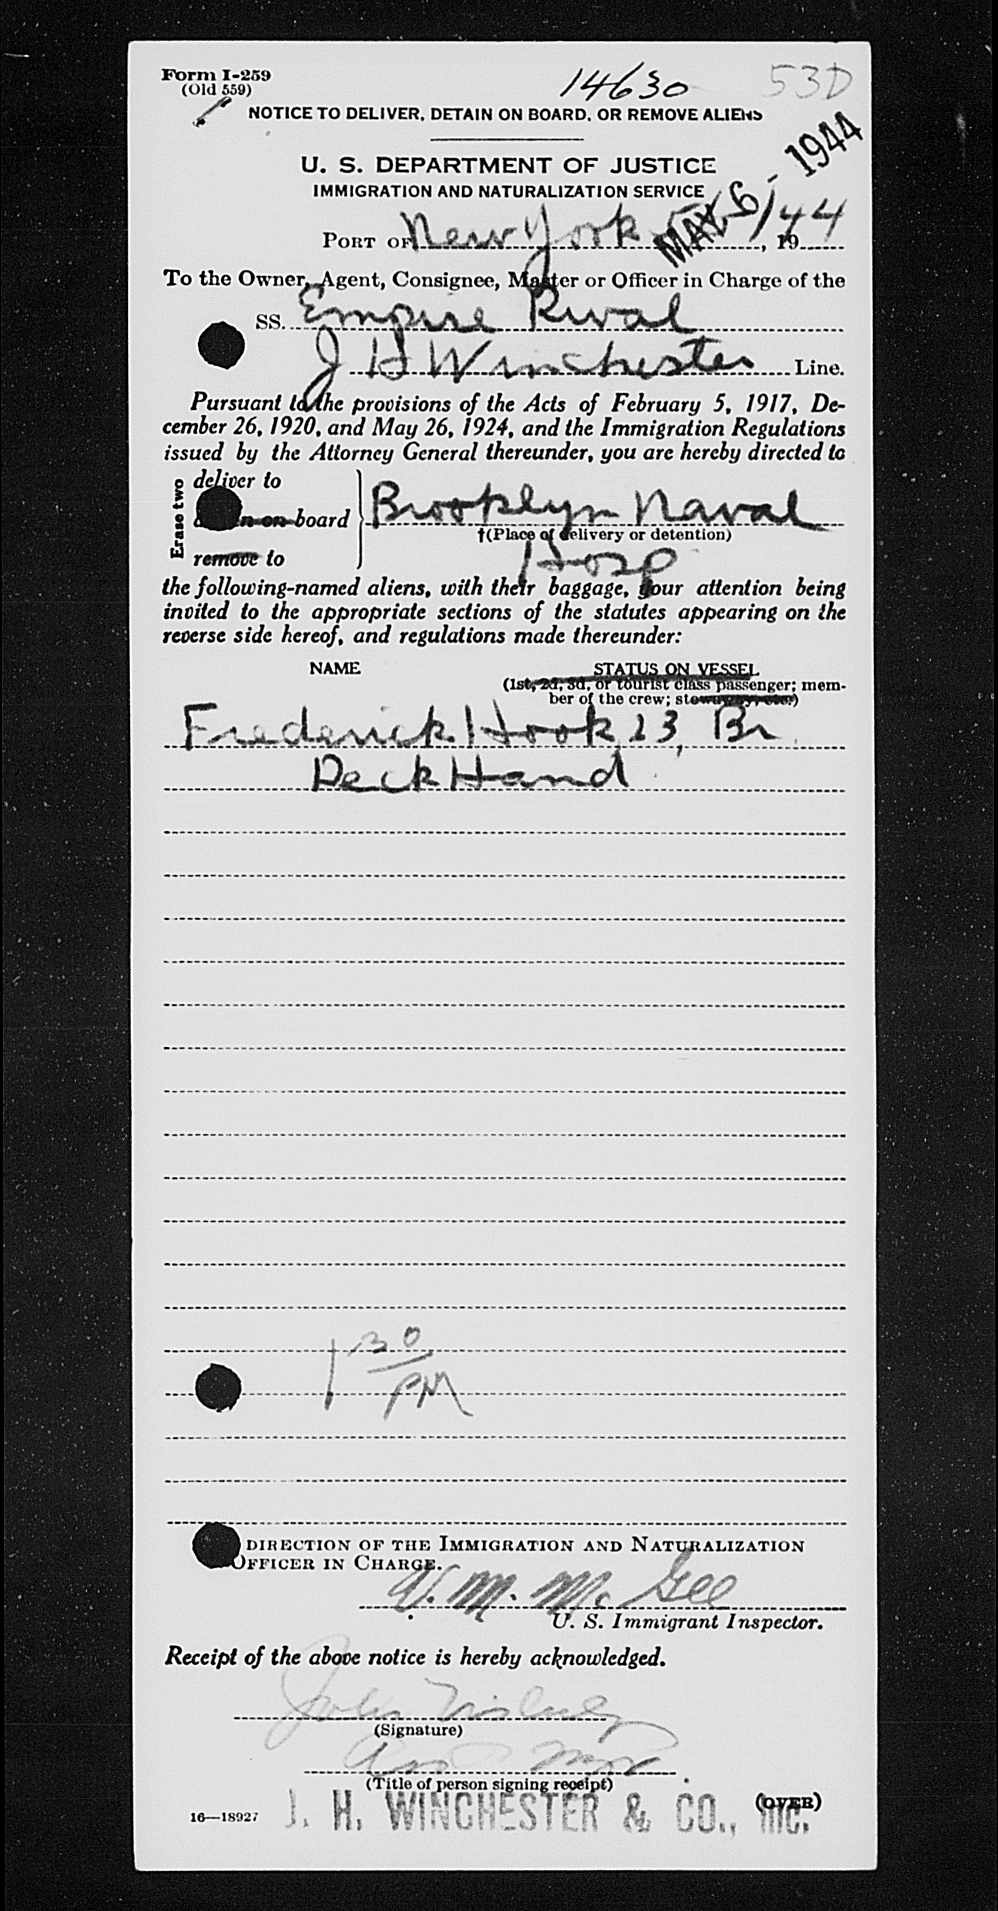 Form I-259
(Old 559)
14630
53D
NOTICE TO DELIVER, DETAIN ON BOARD, OR REMOVE ALIENS
MAY 6 - 1944
U. S. DEPARTMENT OF JUSTICE
IMMIGRATION AND NATURALIZATION SERVICE
PORT OF New York, 1944
To the Owner, Agent, Consignee, Master or Officer in Charge of the
SS. Empire Rival
J H Winchester Line.
Pursuant to the provisions of the Acts of February 5, 1917, De-
cember 26, 1920, and May 26, 1924, and the Immigration Regulations
issued by the Attorney General thereunder, you are hereby directed to
Erase two
deliver to
on board
remove to
Brooklyn Naval
†(Place of delivery or detention)
Hosp
the following-named aliens, with their baggage, your attention being
invited to the appropriate sections of the statutes appearing on the
reverse side hereof, and regulations made thereunder:
NAME
STATUS ON VESSEL
(1st, 2d, 3d, or tourist class passenger; mem-
ber of the crew; stowaway, etc.)
Frederick Hook 23, Br
Deck Hand
1 30
PM
DIRECTION OF THE IMMIGRATION AND NATURALIZATION
OFFICER IN CHARGE.
V. M. McGee
U. S. Immigrant Inspector.
Receipt of the above notice is hereby acknowledged.
John
(Signature)
(Title of person signing receipt)
16—18927
J. H. WINCHESTER & CO., INC.
(OVER)